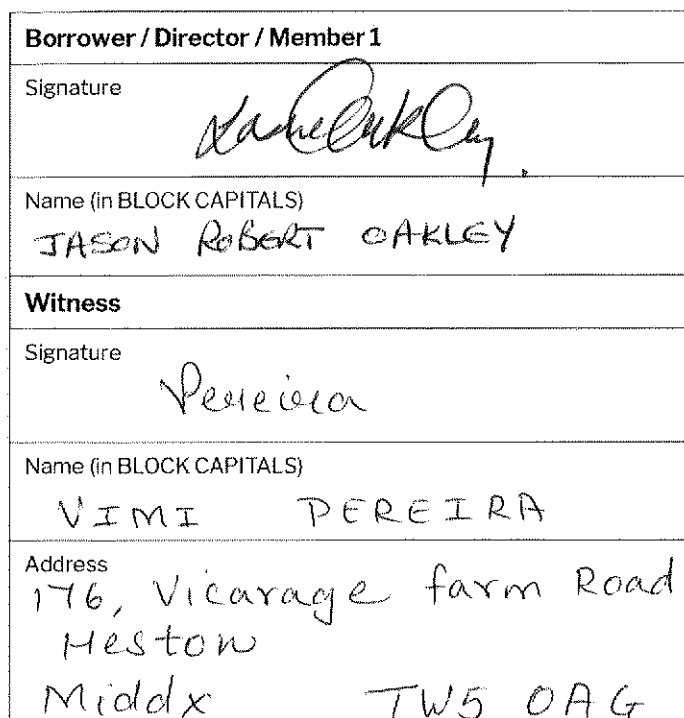 Borrower / Director / Member 1
Signature
Name (in BLOCK CAPITALS)
JASON ROBERT OAKLEY
Witness
Signature
Pereira
Name (in BLOCK CAPITALS)
VIMI PEREIRA
Address
176, Vicarage farm Road
Heston
Middx TW5 0AG